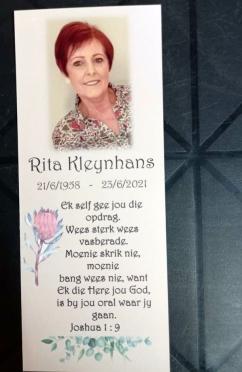 Rita Kleynhans
21/6/1958 - 23/6/2021
Ek self gee jou die
opdrag.
Wees sterk wees
vasberade.
Moenie skrik nie,
moenie
bang wees nie, want
Ek die Here jou God,
is by jou oral waar jy
gaan.
Joshua 1 : 9